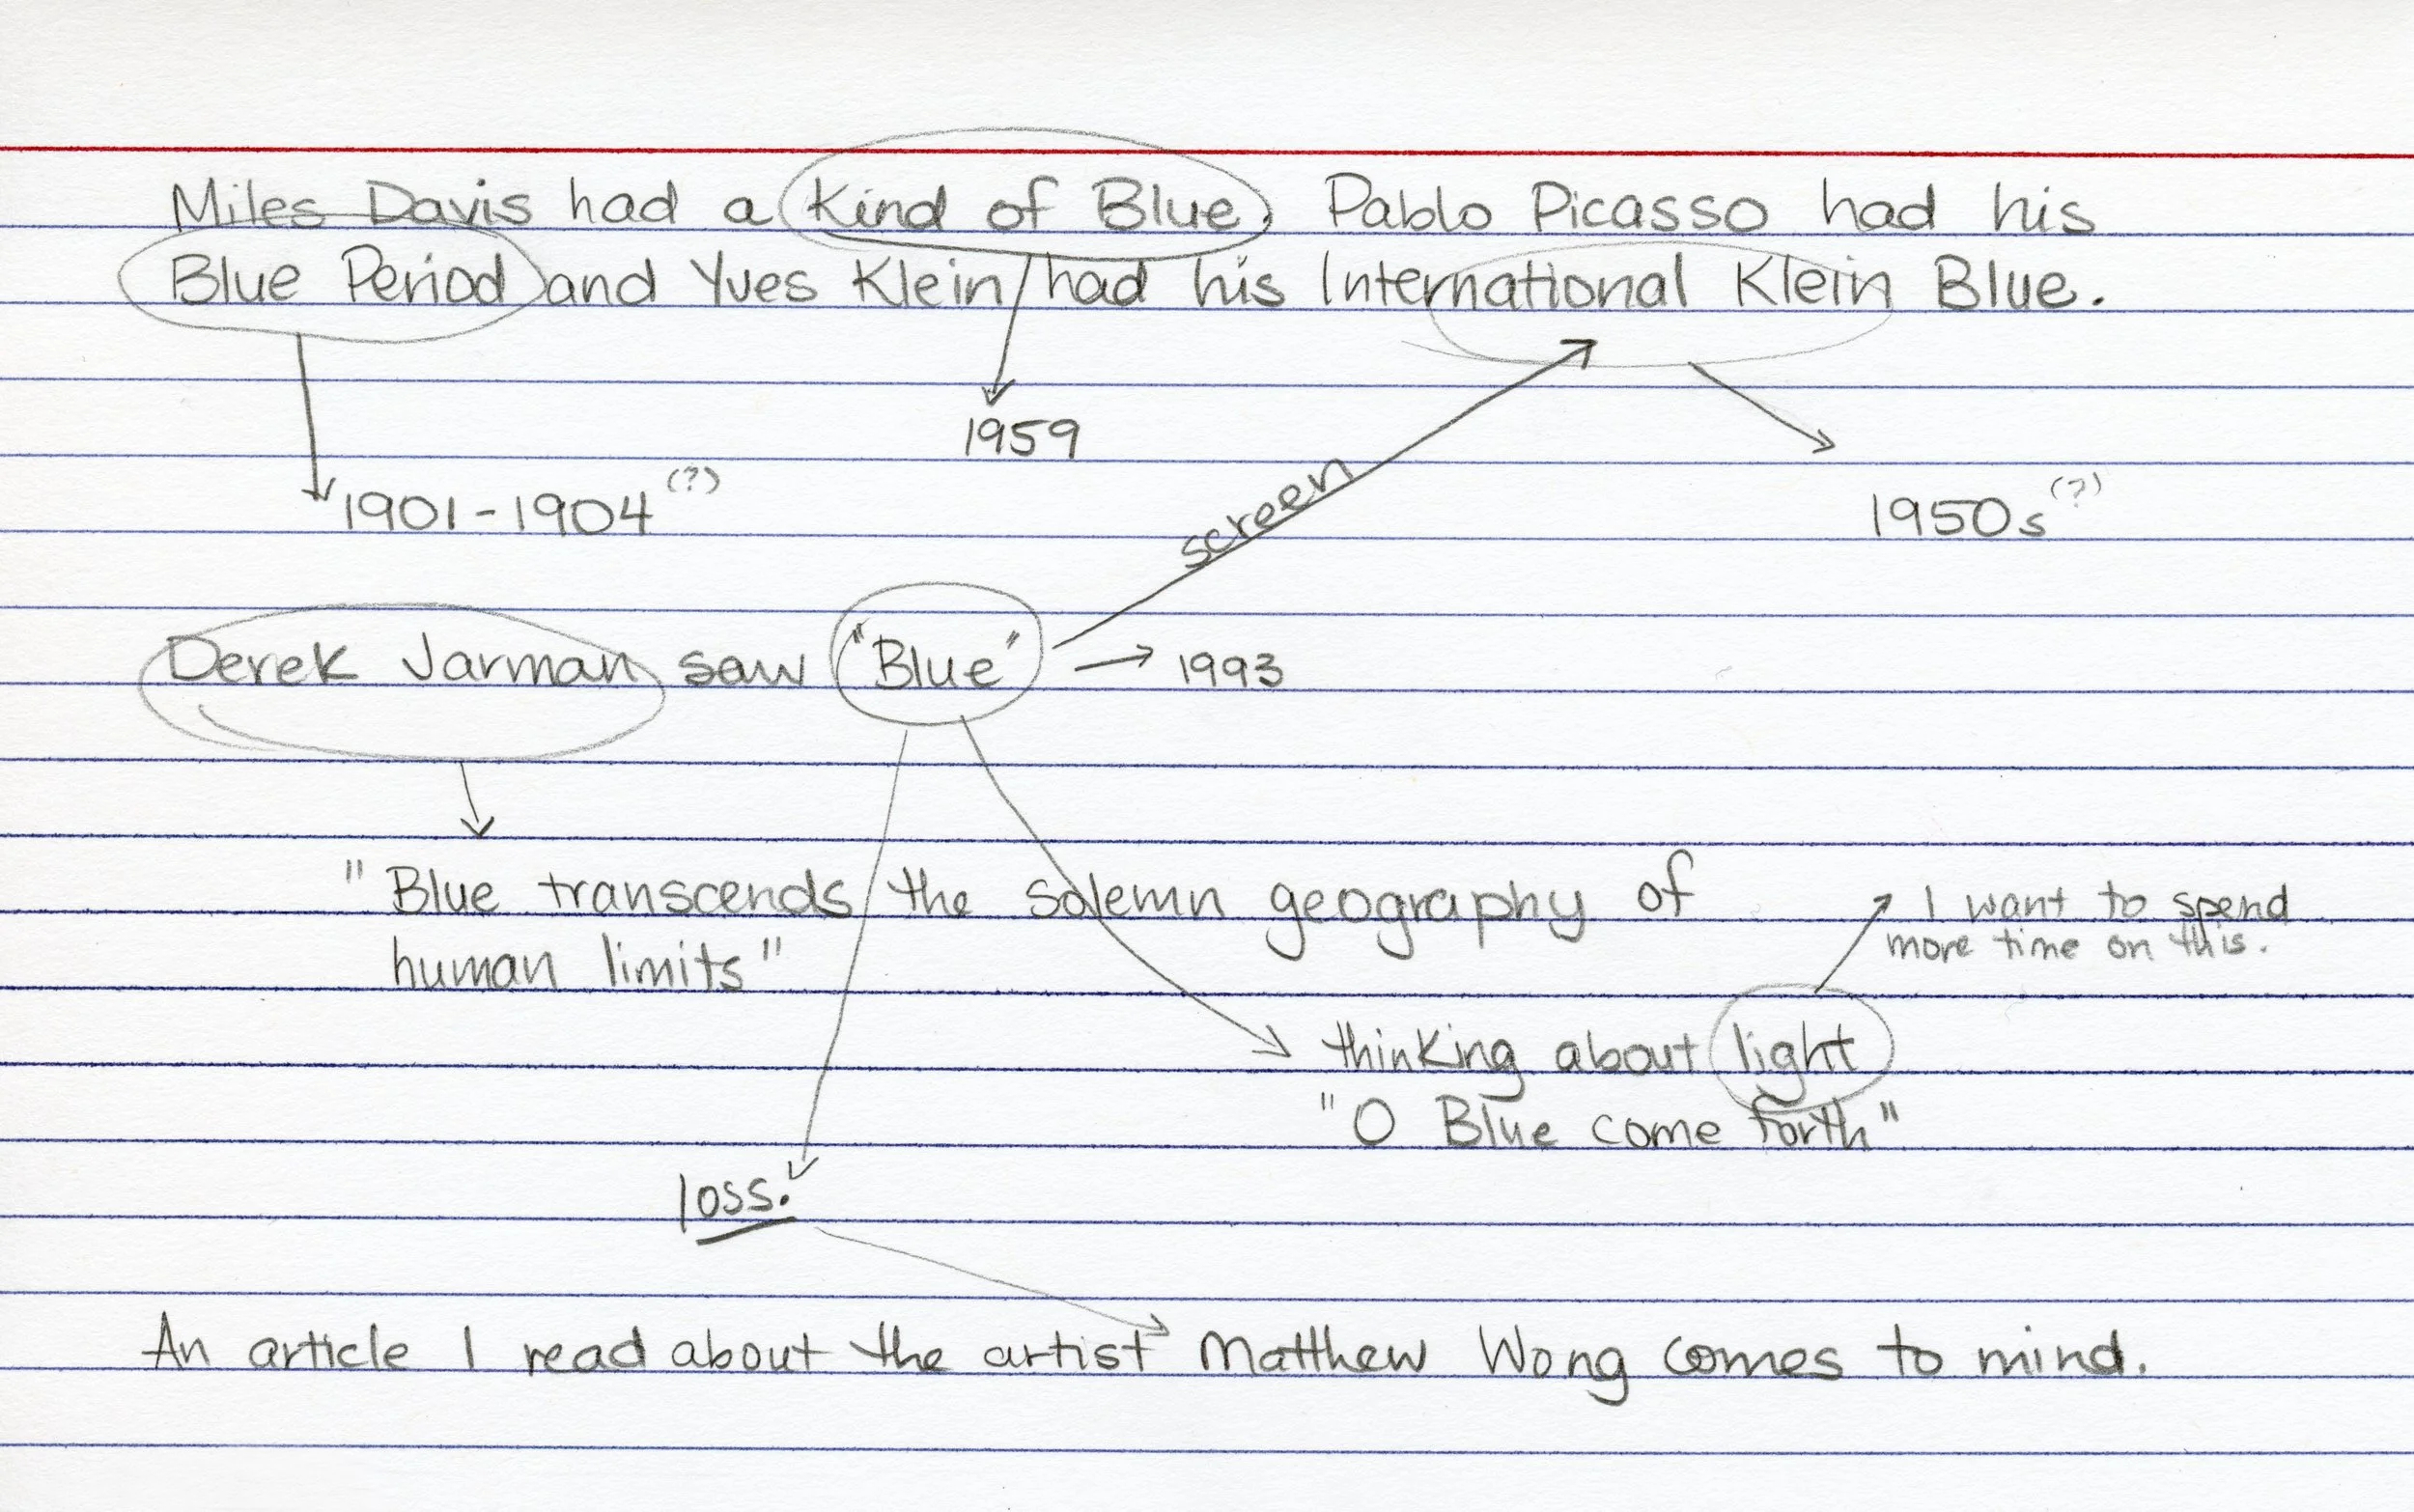 Miles Davis had a Kind of Blue. Pablo Picasso had his
Blue Period and Yves Klein had his International Klein Blue.
1959
1901-1904 (?)
1950s (?)
screen
Derek Jarman saw "Blue" → 1993
"Blue transcends the solemn geography of
human limits"
I want to spend
more time on this.
thinking about light
"O Blue come forth"
loss.
An article I read about the artist Matthew Wong comes to mind.